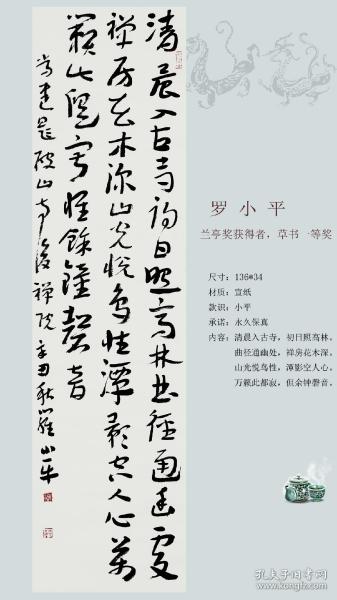 清晨入古寺初日照高林曲徑通幽處
禪房花木深山光悦鳥性潭影空人心萬
籟此俱寂惟餘鐘磬音
常建題破山寺後禪院辛秋羅小平
罗小平
兰亭奖获得者，草书一等奖
尺寸：136*34
材质：宣纸
款识：小平
承诺：永久保真
内容：清晨入古寺，初日照高林。
曲径通幽处，禅房花木深。
山光悦鸟性，潭影空人心。
万籁此都寂，但余钟磬音。
孔夫子旧书网
www.kongfz.com